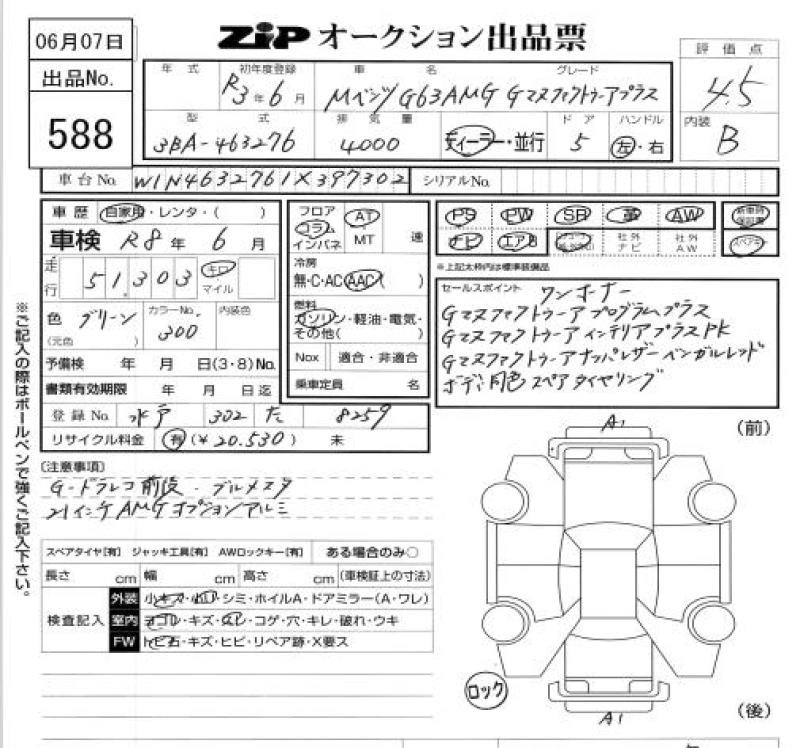 06月07日
出品No.
588
ZiP オークション出品票
年 式 初年度登録 車 名 グレード
R3年6月 Mベンツ G63AMG Gマヌファクトゥーアプラス
型 式 排 気 量 ドア ハンドル
3BA-463276 4000 ディーラー・並行 5 左・右
評価点
4.5
内装
B
車台No. W1N4632761X397302 シリアルNo.
車 歴 自家用・レンタ・( )
車検 R8年 6月
走行 51,303 キロ マイル
色 グリーン カラーNo. 300 内装色
(元色)
予備検 年 月 日(3・8)No.
書類有効期限 年 月 日迄
登録No. 水戸 302 た 8259
リサイクル料金 有(¥20.530) 未
フロア
コラム
インパネ
AT
MT 速
冷房
無・C・AC・AAC( )
燃料
ガソリン・軽油・電気・
その他( )
Nox 適合・非適合
乗車定員 名
PS PW SR 革 AW 新車時保証書
ナビ エアB 社外ナビ 社外AW スペアキー
※上記太枠内は標準装備品
セールスポイント ワンオーナー
Gマヌファクトゥーアプログラムプラス
GマヌファクトゥーアインテリアプラスPK
Gマヌファクトゥーアナッパレザーベンガルレッド
ボディ同色スペアタイヤリング
※ご記入の際はボールペンで強くご記入下さい。
(注意事項)
G・ドラレコ前後・ブルメスタ
21インチAMGオプションアルミ
スペアタイヤ[有] ジャッキ工具[有] AWロックキー[有] ある場合のみ○
長さ cm 幅 cm 高さ cm (車検証上の寸法)
検査記入
外装 小キズ・小凹・シミ・ホイルA・ドアミラー(A・ワレ)
室内 ヨゴレ・キズ・スレ・コゲ・穴・キレ・破れ・ウキ
FW トビ石・キズ・ヒビ・リペア跡・X要ス
A1
(前)
ロック
A1
(後)